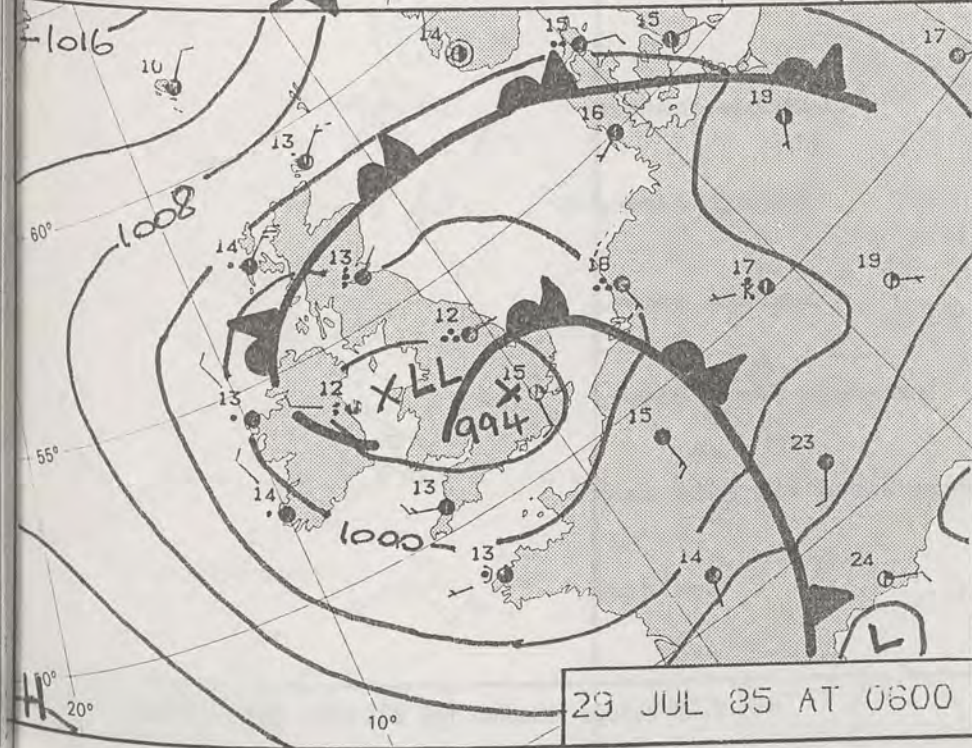 1016
14
15
15
17
10
19
16
13
1008
60°
14
13
18
17
19
12
LL
12
15
994
13
55°
15
23
14
13
1000
13
14
24
L
H
20°
10°
29 JUL 85 AT 0600